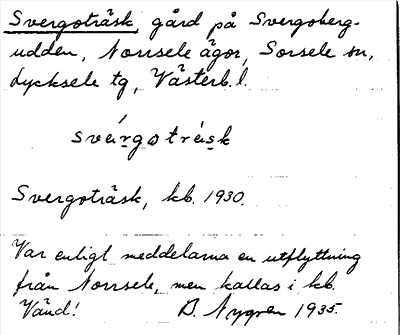 Svergoträsk, gård på Svergoberg-
udden, Norrsele ägor, Sorsele sn,
Lycksele tg, Västerb. l.
svergotrésk
Svergoträsk, kb. 1930.
Var enligt meddelarna en utflyttning
från Norrsele, men kallas i kb.
Vänd! D. Nygren 1935.